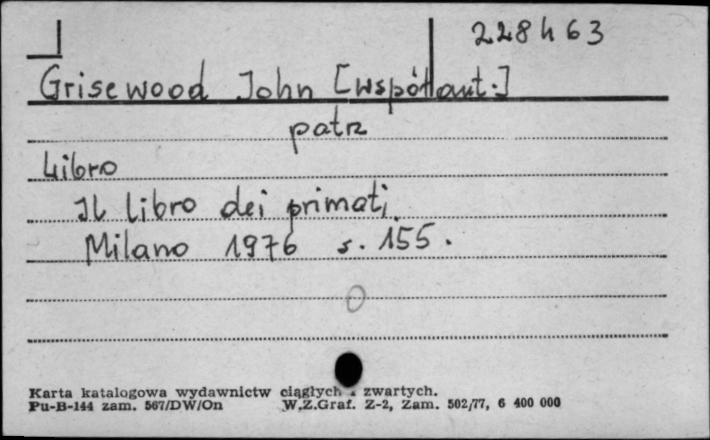 228463
Grisewood John [współaut.]
patrz
Libro
Il libro dei primati
Milano 1976 s. 155.
Karta katalogowa wydawnictw ciągłych i zwartych.
Pu-B-144 zam. 567/DW/On W.Z.Graf. Z-2, Zam. 502/77, 6 400 000